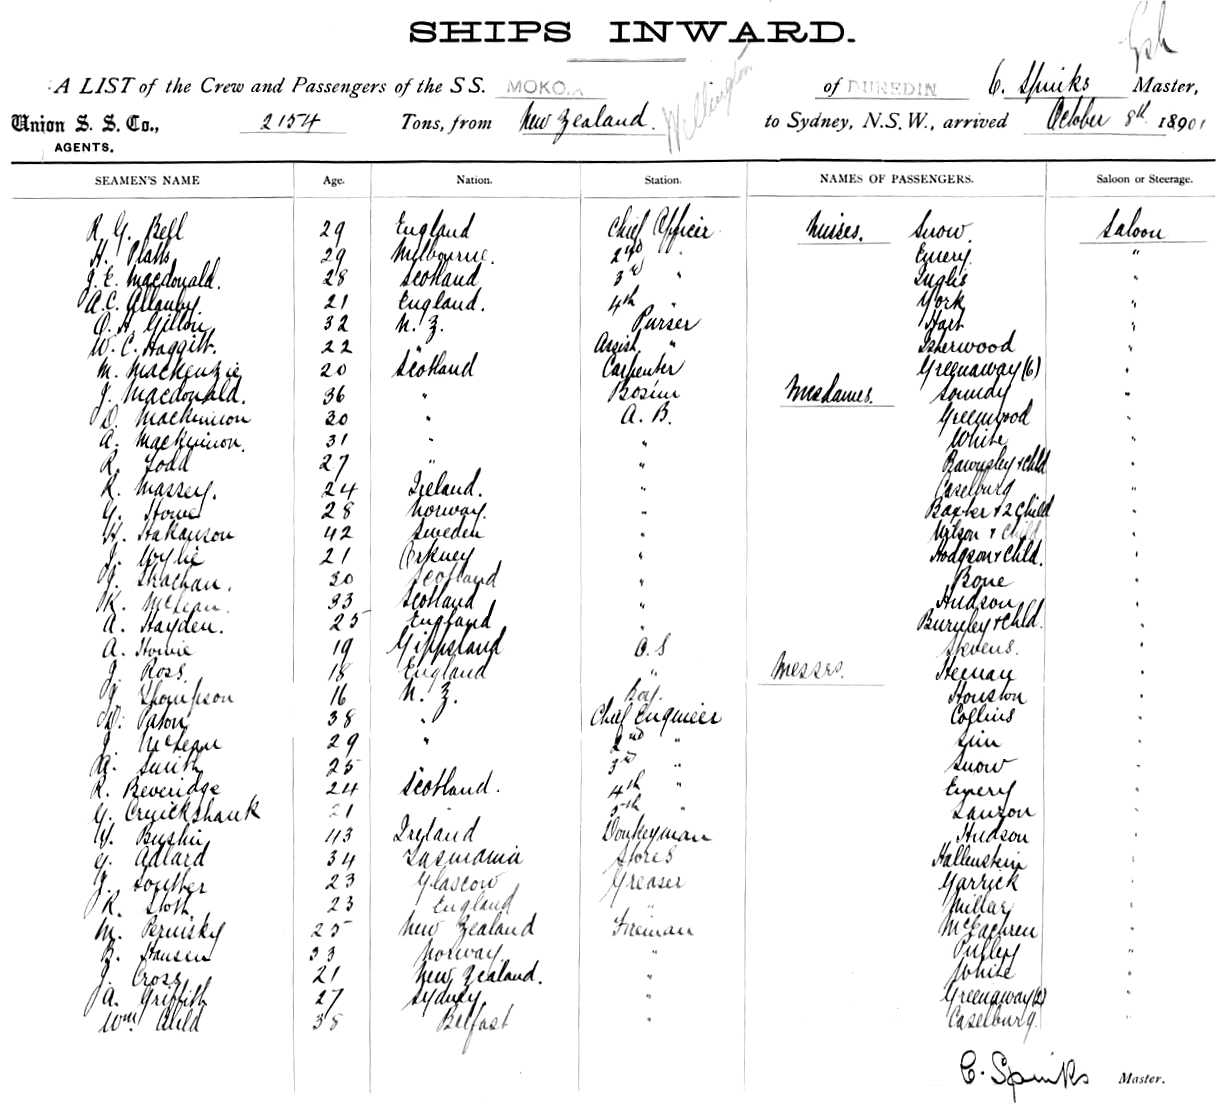 SHIPS INWARD.
A LIST of the Crew and Passengers of the S S. MOKOIA of DUNEDIN C. Spinks Master,
Wellington
Union S. S. Co., 2154 Tons, from New Zealand. to Sydney, N.S.W., arrived October 8th 1890
AGENTS.
SEAMEN'S NAME Age. Nation. Station. NAMES OF PASSENGERS. Saloon or Steerage.
R. G. Bell 29 England Chief Officer Misses. Snow Saloon
H. Platts 29 Melbourne. 2nd " Emery "
J. E. Macdonald. 28 Scotland 3rd " Inglis "
A. C. Allanby. 21 England. 4th " York "
O. H. Gillon 32 N. Z. Purser Hart "
W. C. Haggitt. 22 " Assist. " Isherwood "
M. Mackenzie 20 Scotland Carpenter Greenaway (6) "
J. Macdonald. 36 " Bosun Mesdames. Soundy "
D. Mackinnon 30 " A. B. Greenwood "
A. Mackinnon. 31 " " White "
R. Todd 27 " " Bawnsley + child "
R. Massey. 24 Ireland. " Caselburg "
G. Howe 28 Norway. " Baxter + 2 Child "
H. Hakanson 42 Sweden " Wilson + Child "
J. Wylie 21 Orkney " Hodgson + Child. "
J. Strachan. 30 Scotland " Bone "
K. McLean. 33 Scotland " Hudson "
A. Hayden. 25 England " Burnley + Chld. "
A. Howie 19 Gippsland O. S Stevens. "
J. Ross. 18 England " Messrs. Heenan "
J. Thompson 16 N. Z. Boy. Houston "
D. Paton 38 " Chief Engineer Collins "
J. McLean 29 " 2nd " Sim "
A. Smith 25 3rd " Snow "
R. Beveridge 24 Scotland. 4th " Emery "
G. Cruickshank 21 " 5th " Lanzon "
H. Bushin 43 Ireland Donkeyman Hudson "
G. Adlard 34 Tasmania Stores Hallenstein "
J. Soutter 23 Glascow Greaser Garrick "
R. Sloth 23 England " Millar "
M. Pernisky 25 New Zealand Fireman McEachren "
B. Hansen 33 Norway. " Pulley "
J. Cross 21 New Zealand. " White "
A. Griffith 27 Sydney " Greenaway (2) "
Wm. Auld 38 Belfast " Caselburg. "
C. Spinks Master.